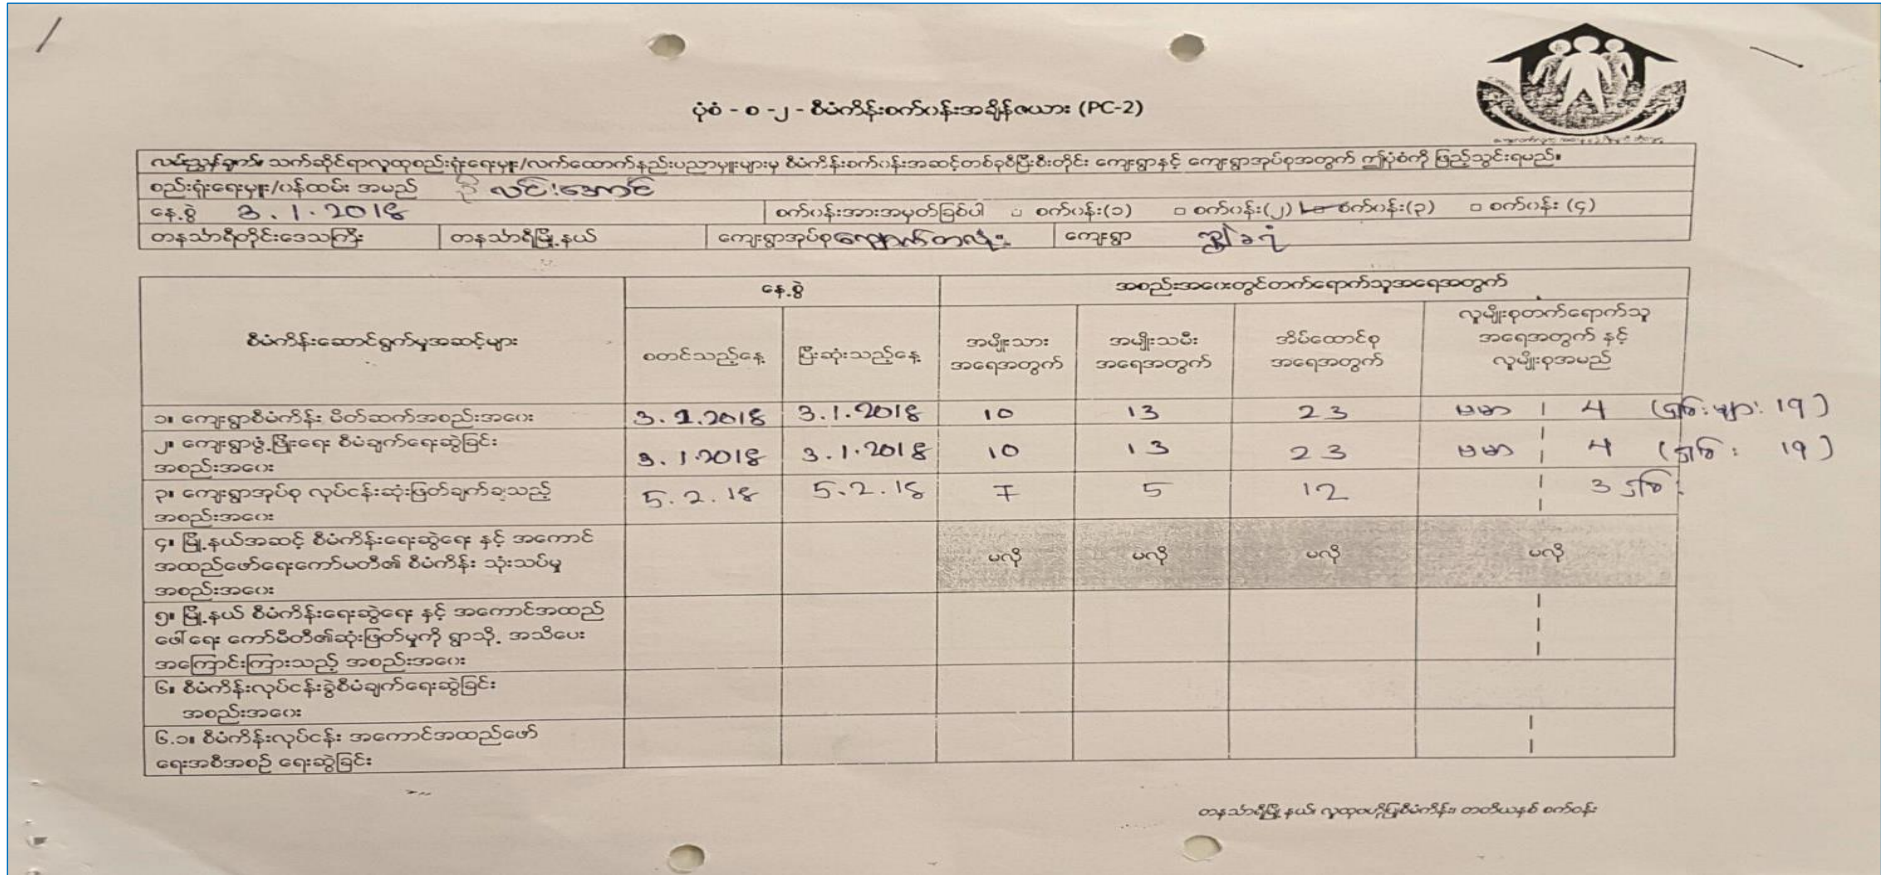 ပုံစံ - စ -၂ - စီမံကိန်းစက်ဝန်းအချိန်ဇယား (PC-2)
လမ်းညွှန်ချက်။ သက်ဆိုင်ရာလူထုစည်းရုံးရေးမှူး/လက်ထောက်နည်းပညာမှူးများမှ စီမံကိန်းစက်ဝန်းအဆင့်တစ်ခုစီပြီးစီးတိုင်း ကျေးရွာနှင့် ကျေးရွာအုပ်စုအတွက် ဤပုံစံကို ဖြည့်သွင်းရမည်။
စည်းရုံးရေးမှူး/ဝန်ထမ်း အမည် လင်းအောင်
နေ့စွဲ 3.1.2018 စက်ဝန်းအားအမှတ်ခြစ်ပါ □ စက်ဝန်း(၁) □ စက်ဝန်း(၂) စက်ဝန်း(၃) □ စက်ဝန်း (၄)
တနင်္သာရီတိုင်းဒေသကြီး တနင်္သာရီမြို့နယ် ကျေးရွာအုပ်စု ကျေးရွာ
နေ့စွဲ အစည်းအဝေးတွင်တက်ရောက်သူအရေအတွက်
စီမံကိန်းဆောင်ရွက်မှုအဆင့်များ စတင်သည့်နေ့ ပြီးဆုံးသည့်နေ့ အမျိုးသား အရေအတွက် အမျိုးသမီး အရေအတွက် အိမ်ထောင်စု အရေအတွက် လူမျိုးစုတက်ရောက်သူ အရေအတွက် နှင့် လူမျိုးစုအမည်
၁။ ကျေးရွာစီမံကိန်း မိတ်ဆက်အစည်းအဝေး 3.1.2018 3.1.2018 10 13 23 ဗမာ 4 19)
၂။ ကျေးရွာဖွံ့ဖြိုးရေး စီမံချက်ရေးဆွဲခြင်း
အစည်းအဝေး 3.1.2018 3.1.2018 10 13 23 ဗမာ 4 19)
၃။ ကျေးရွာအုပ်စု လုပ်ငန်းဆုံးဖြတ်ချက်ချသည့်
အစည်းအဝေး 5.2.18 5.2.18 7 5 12 3
၄။ မြို့နယ်အဆင့် စီမံကိန်းရေးဆွဲရေး နှင့် အကောင်
အထည်ဖော်ရေးကော်မတီ၏ စီမံကိန်း သုံးသပ်မှု
အစည်းအဝေး မလို မလို မလို မလို
၅။ မြို့နယ် စီမံကိန်းရေးဆွဲရေး နှင့် အကောင်အထည်
ဖေါ်ရေး ကော်မီတီ၏ဆုံးဖြတ်မှုကို ရွာသို့ အသိပေး
အကြောင်းကြားသည့် အစည်းအဝေး
၆။ စီမံကိန်းလုပ်ငန်းခွဲစီမံချက်ရေးဆွဲခြင်း
အစည်းအဝေး
၆.၁။ စီမံကိန်းလုပ်ငန်း အကောင်အထည်ဖော်
ရေးအစီအစဉ် ရေးဆွဲခြင်း
တနင်္သာရီမြို့နယ်၊ လူထုဗဟိုပြုစီမံကိန်း၊ တတိယနှစ် စက်ဝန်း